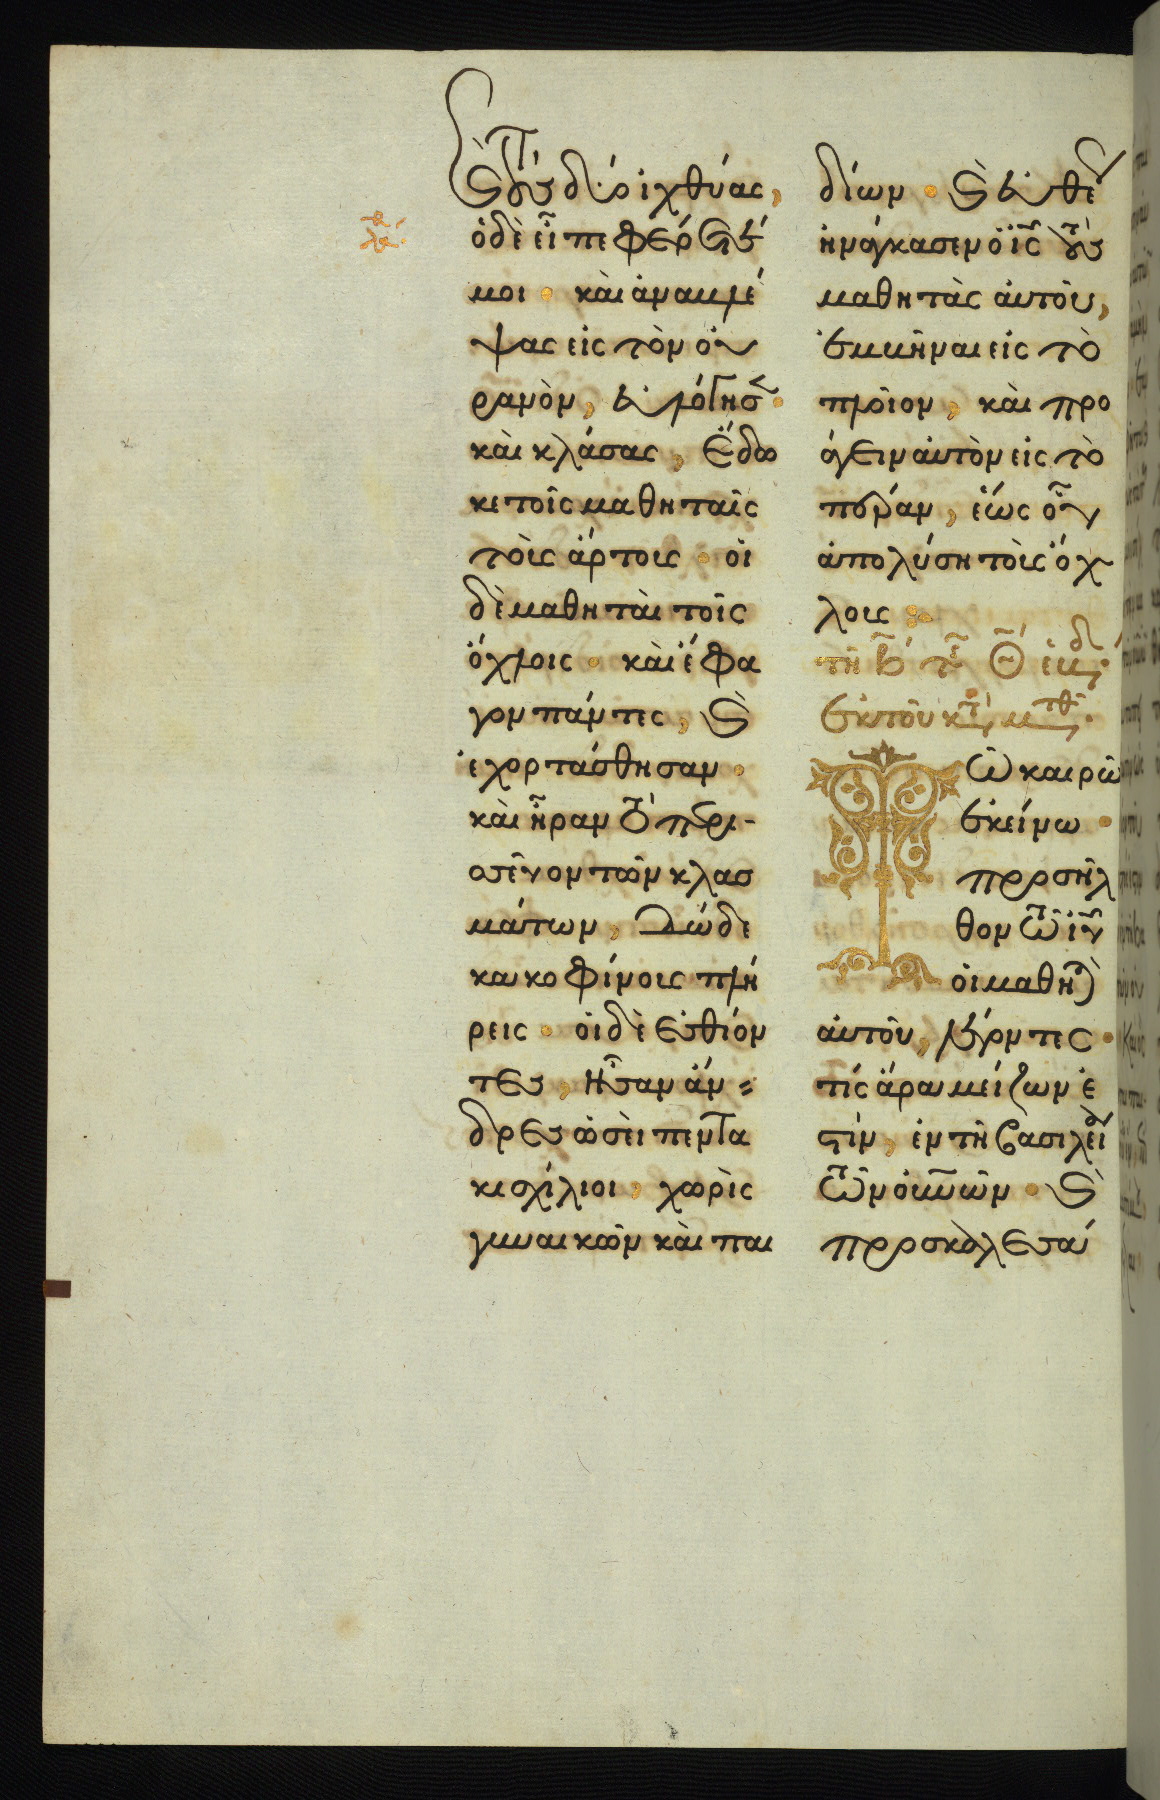 καὶ τοὺς δύο ἰχθύας,
ὁ δὲ εἶπε φέρετέ
μοι · καὶ ἀναβλέ
ψας εἰς τὸν οὐ
ρανὸν, εὐλόγησε ·
καὶ κλάσας, ἔδω
κε τοῖς μαθηταῖς
τοὺς ἄρτους · οἱ
δὲ μαθηταὶ τοῖς
ὄχλοις · καὶ ἔφα
γον πάντες, καὶ
ἐχορτάσθησαν ·
καὶ ἦραν τὸ περισ
σεῦον τῶν κλασ
μάτων, δώδε
κα κοφίνους πλή
ρεις · οἱ δὲ ἐσθίον
τες, ἦσαν ἄν
δρες ὡσεὶ πεντα
κισχίλιοι, χωρὶς
γυναικῶν καὶ παι
δίων · καὶ εὐθέως
ἠνάγκασεν ὁ ἰς τοὺς
μαθητὰς αὐτοῦ,
ἐμβῆναι εἰς τὸ
πλοῖον, καὶ προ
άγειν αὐτὸν εἰς τὸ
πέραν, ἕως οὗ
ἀπολύση τοὺς ὄχ
λους
τῆ β τῆς θ ἑβδ
ἐκ τοῦ κατὰ ματθ
Τῶ καιρῶ
ἐκείνω ·
προσῆλ
θον τῶ ἰυ
οἱ μαθηταὶ
αὐτοῦ, λέγοντες ·
τίς ἄρα μείζων ἐ
στὶν, ἐν τῆ βασιλεία
τῶν οὐνῶν · καὶ
προσκαλεσά